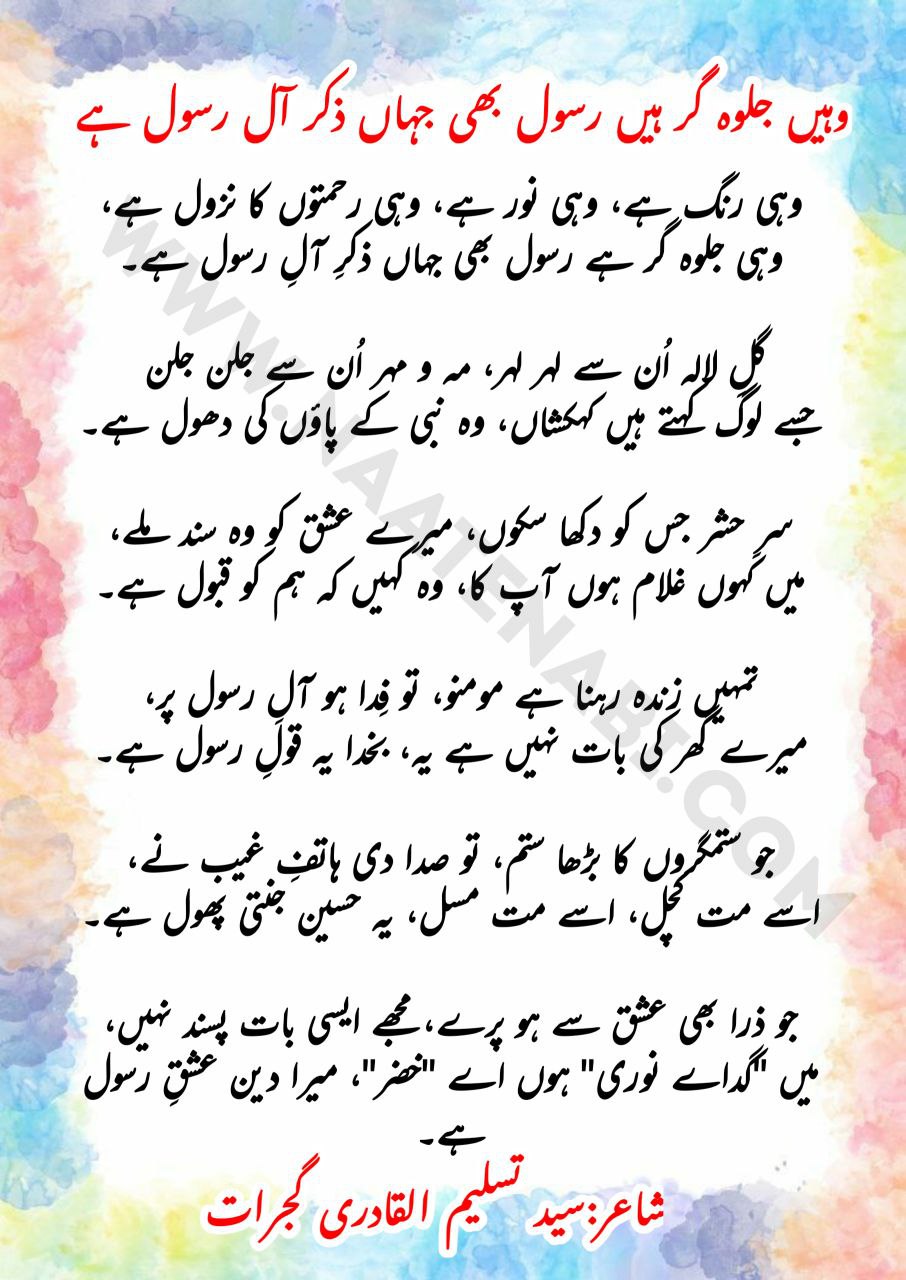 وہیں جلوہ گر ہیں رسول بھی جہاں ذکر آل رسول ہے
وہی رنگ ہے، وہی نور ہے، وہی رحمتوں کا نزول ہے،
وہی جلوہ گر ہے رسول بھی جہاں ذکرِ آلِ رسول ہے۔
گلِ لالہ اُن سے لہر لہر، مہ و مہر اُن سے جلن جلن
جسے لوگ کہتے ہیں کہکشاں، وہ نبی کے پاؤں کی دھول ہے۔
سرِ حشر جس کو دکھا سکوں، میرے عشق کو وہ سند ملے،
میں کہوں غلام ہوں آپ کا، وہ کہیں کہ ہم کو قبول ہے۔
تمہیں زندہ رہنا ہے مومنو، تو فِدا ہو آلِ رسول پر،
میرے گھر کی بات نہیں ہے یہ، بخدا یہ قولِ رسول ہے۔
جو ستمگروں کا بڑھا ستم، تو صدا دی ہاتفِ غیب نے،
اسے مت کچل، اسے مت مسل، یہ حسین جنتی پھول ہے۔
جو ذرا بھی عشق سے ہو پرے،مجھے ایسی بات پسند نہیں،
میں "گداے نوری" ہوں اے "خضر"، میرا دین عشقِ رسول
ہے۔
شاعر:سید تسلیم القادری گجرات
WWW.NAATENABI.COM